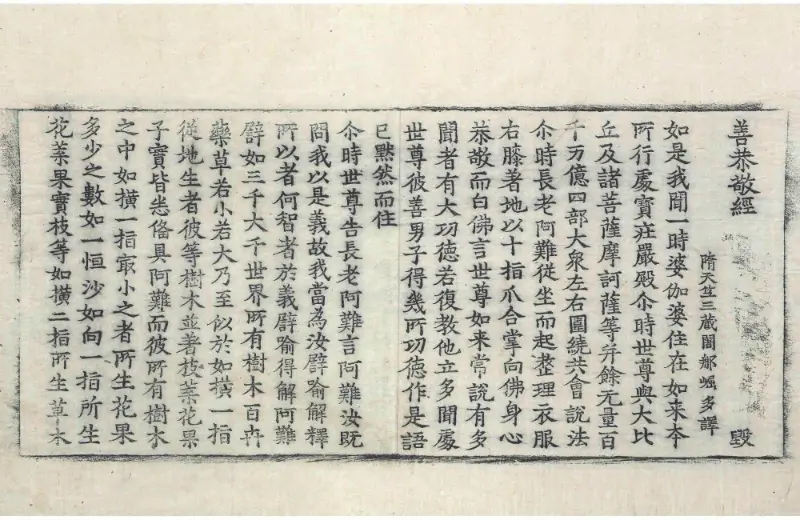 善恭敬經 毀
隋天竺三蔵闍那崛多譯
如是我聞一時婆伽婆住在如来夲
所行處寶莊嚴殿尒時世尊與大比
丘及諸菩薩摩訶薩等并餘无量百
千万億四部大衆左右圍繞共會說法
尒時長老阿難從坐而起整理衣服
右膝著地以十指爪合掌向佛身心
恭敬而白佛言世尊如来常說有多
聞者有大功德若復教他立多聞處
世尊彼善男子得幾所功德作是語
已黙然而住
尒時世尊告長老阿難言阿難汝既
問我以是義故我當為汝譬喻解釋
所以者何智者於義譬喻得解阿難
譬如三千大千世界所有樹木百卉
藥草若小若大乃至似於如橫一指
從地生者彼等樹木並著枝葉花果
子實皆悉俻具阿難而彼所有樹木
之中如橫一指冣小之者所生花果
多少之數如一恒沙如向一指所生
花葉果實枝等如橫二指所生草木